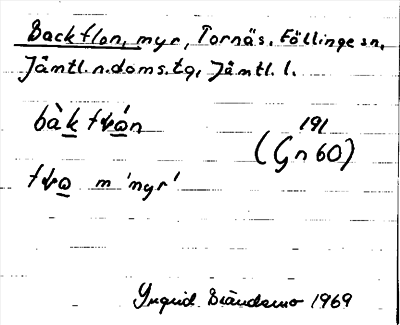 Backflon, myr, Tornäs, Föllinge sn,
Jämtl.n.doms.tg, Jämtl. l.
bàk flo̲n
191
(Gn 60)
flo̲ m 'myr'
Yngvid 1969